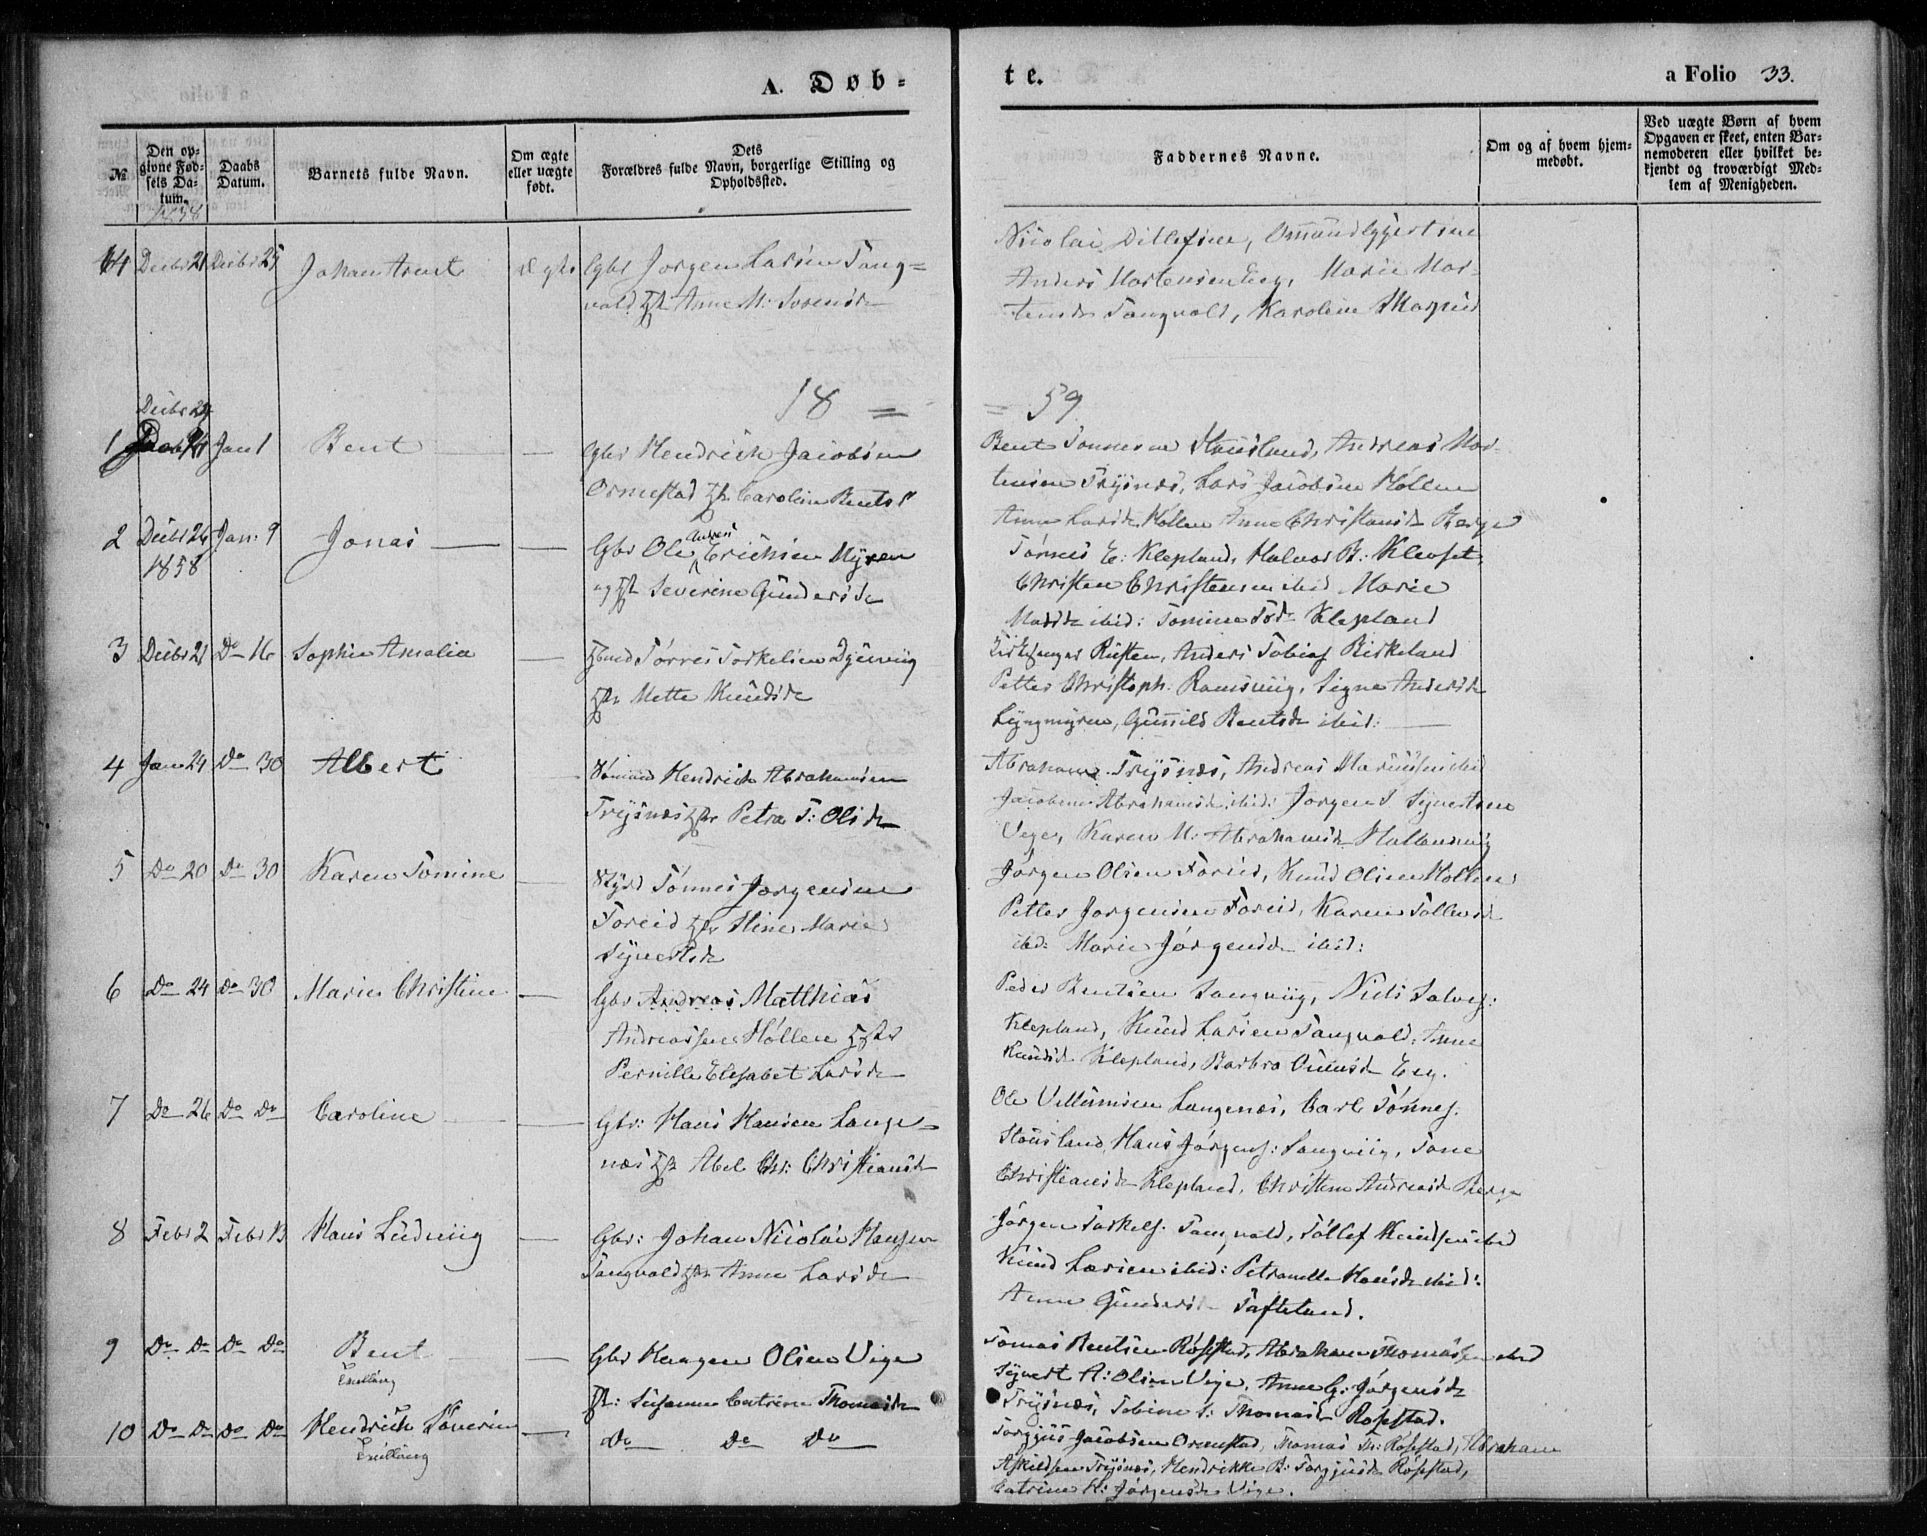 A. Døb-
te.
a Folio 33.
№
Den op-
givne Fød-
sels Da-
tum.
Daabs
Datum.
Barnets fulde Navn.
Om ægte
eller uægte
født.
Dets
Forældres fulde Navn, borgerlige Stilling og
Opholdssted.
Faddernes Navne.
Om og af hvem hjem-
medøbt.
Ved uægte Børn af hvem
Opgaven er skeet, enten Bar-
nemoderen eller hvilket be-
kjendt og troværdigt Med-
lem af Menigheden.
1858
Decbr 21 Decbr 25 Johan Arent
Gbr Jørgen Larsen Tang=
vald Anne M: Sørensd
Nicolai Ditlefsen,
Anders Mortensen Eeg, Marie Mor-
tensd Tangvald, Karoline
18 = = 59
Decbr 29
1 Jan 1 Bent —
Gbr Hendrich Jacobsen
Ormestad Caroline Bents
Bent Tønnesen Stausland, Andreas Mor-
tensen Trysnes, Lars Jacobsen Høllen
Anne Larsd Høllen Anne Christensd Berge
2 Decbr 26 Jan: 9 Jonas —
1858
Gbr Ole Andreas Erichsen Myren
og Severine Gundersd
Tønnes E: Klepland, Halvor B:
Christen Christensen ibid Marie
ibid: Tomine Klepland
3 Decbr 21 Do 16 Sophie Amalia —
Tørres Torkelsen
Mette Knudsd
Kirkesanger Rusten, Anders Tobias Birkeland
Petter Christoph. Ramsviig, Signe Andersd
Lyngmyren, Gunnild Bentsd ibid: —
4 Jan 24 Do 30 Albert
Hendrich Abrahamsen
Trysnes Petra T: Olsd
Abraham Trysnes, Andreas ibid
Jacobine Abrahamsd ibid: Jørgen S Syvertsen
Vege, Karen M: Abrahamsd
5 Do 20 Do 30 Karen Tomine —
Tønnes Jørgensen
Toreid Stine Marie
Syvertsd
Jørgen Olsen Toreid, Knud Olsen Holten
Petter Jørgensen Toreid, Karen
ibd: Marie Jørgensd ibid:
6 Do 24 Do 30 Marie Christine —
Gbr Andreas Matthias
Andreassen Høllen
Pernille Elisabet Larsd
Peder Bentsen Langviig, Niels Salves:
Klepland, Knud Larsen Tangvald, Anne
Knudsd Klepland, Barbra Eeg.
7 Do 26 Do Do Caroline —
Gbr: Hans Hansen Lange-
næs Abel Chr: Christiansd
Ole Villumsen Langenæs, Carl Tønnes.
Stausland, Hans Jørgens: Langviig, Tone
Christiansd Klepland, Christine Andreasd Berge
8 Febr 2 Febr 13 Hans Ludviig —
Gbr: Johan Nicolai Hansen
Tangvald Anne Larsd
Jørgen Torkels. Tangvald, Tollef Knudsen ibid
Knud Larsen ibid: Petronelle Hansd ibid:
Anne Gundersd Tofteland.
9 Do Do Do Do Bent —
Tvilling
Gbr Haagen Olsen Vige
Susanne Catrine Thomasd
Tomas Bentsen Røsstad, Abraham Thomassen ibid
Syvert A: Olsen Vige, Anne G: Jørgensd
Trysnes, Tobine S: Thomasd Røsstad.
10 Do Do Do Do Hendrich Severin —
Tvilling
Do Do Do
Torgjus Jacobsen Ormestad, Thomas Th: Røsstad, Abraham
Askildsen Trysnes, Hendrikke B: Torgjusd Røsstad,
Catrine H: Jørgensd Vige.